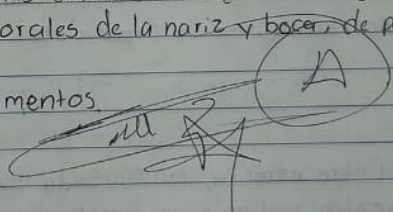 orales de la nariz y bocer, de p
A
mentos.